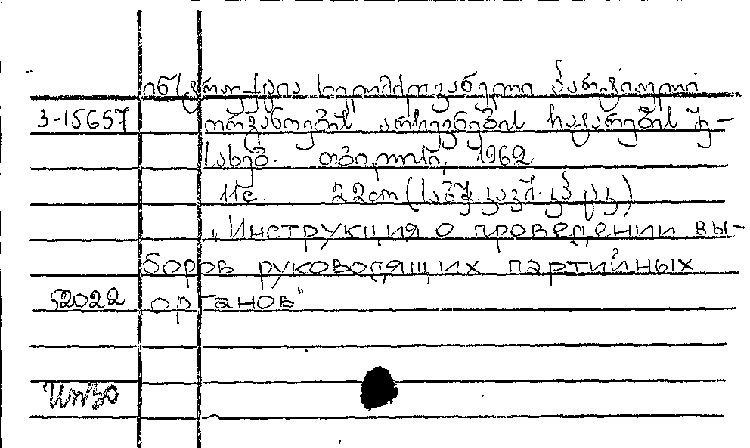 ინსტრუქცია ხელმძღვანელი პარტიული
3-15657 ორგანოების არჩევნების ჩატარების შე-
სახებ. თბილისი, 1962
11с. 22см (საქ. კპ ცკ)
„Инструкция о проведении вы-
боров руководящих партийных
52022 органов"